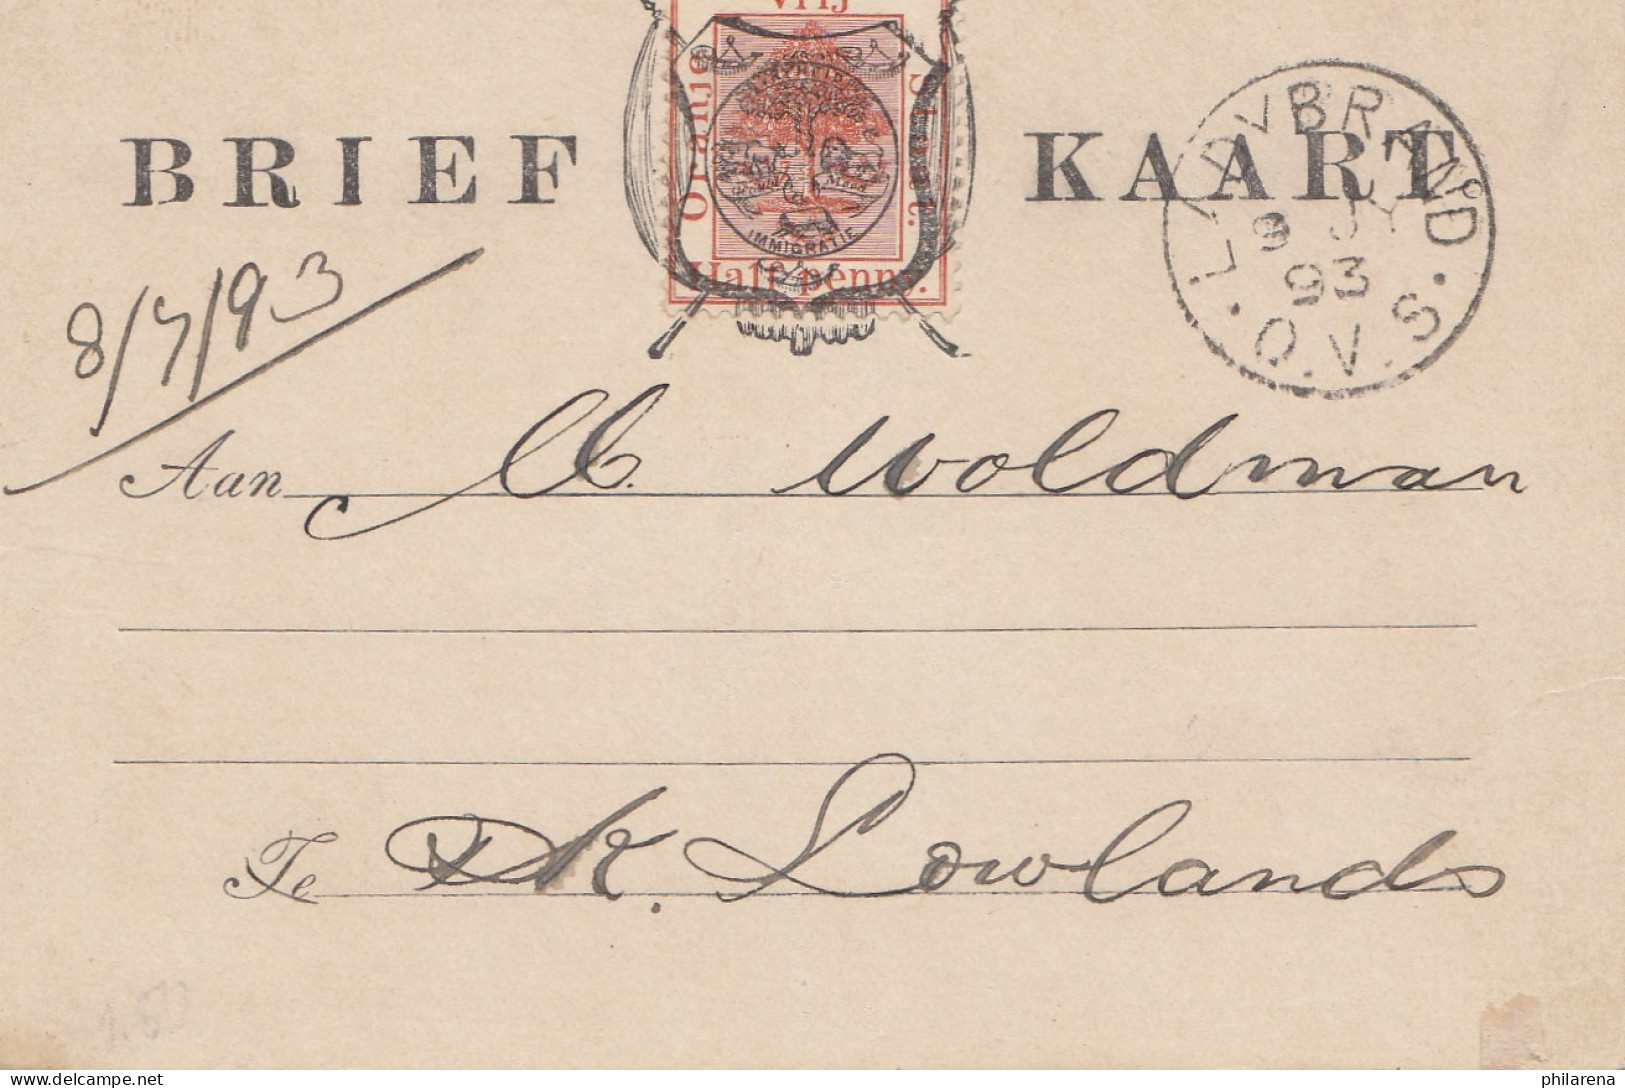 Vrij
Oranje Staat.
VRYHEID
IMMIGRATIE
Half penny.
BRIEF KAART
LADYBRAND.
9 JY
93
O.V.S.
8/7/93
Aan M Woldman
Te DK. Lowlands
1.50
delcampe.net
philarena